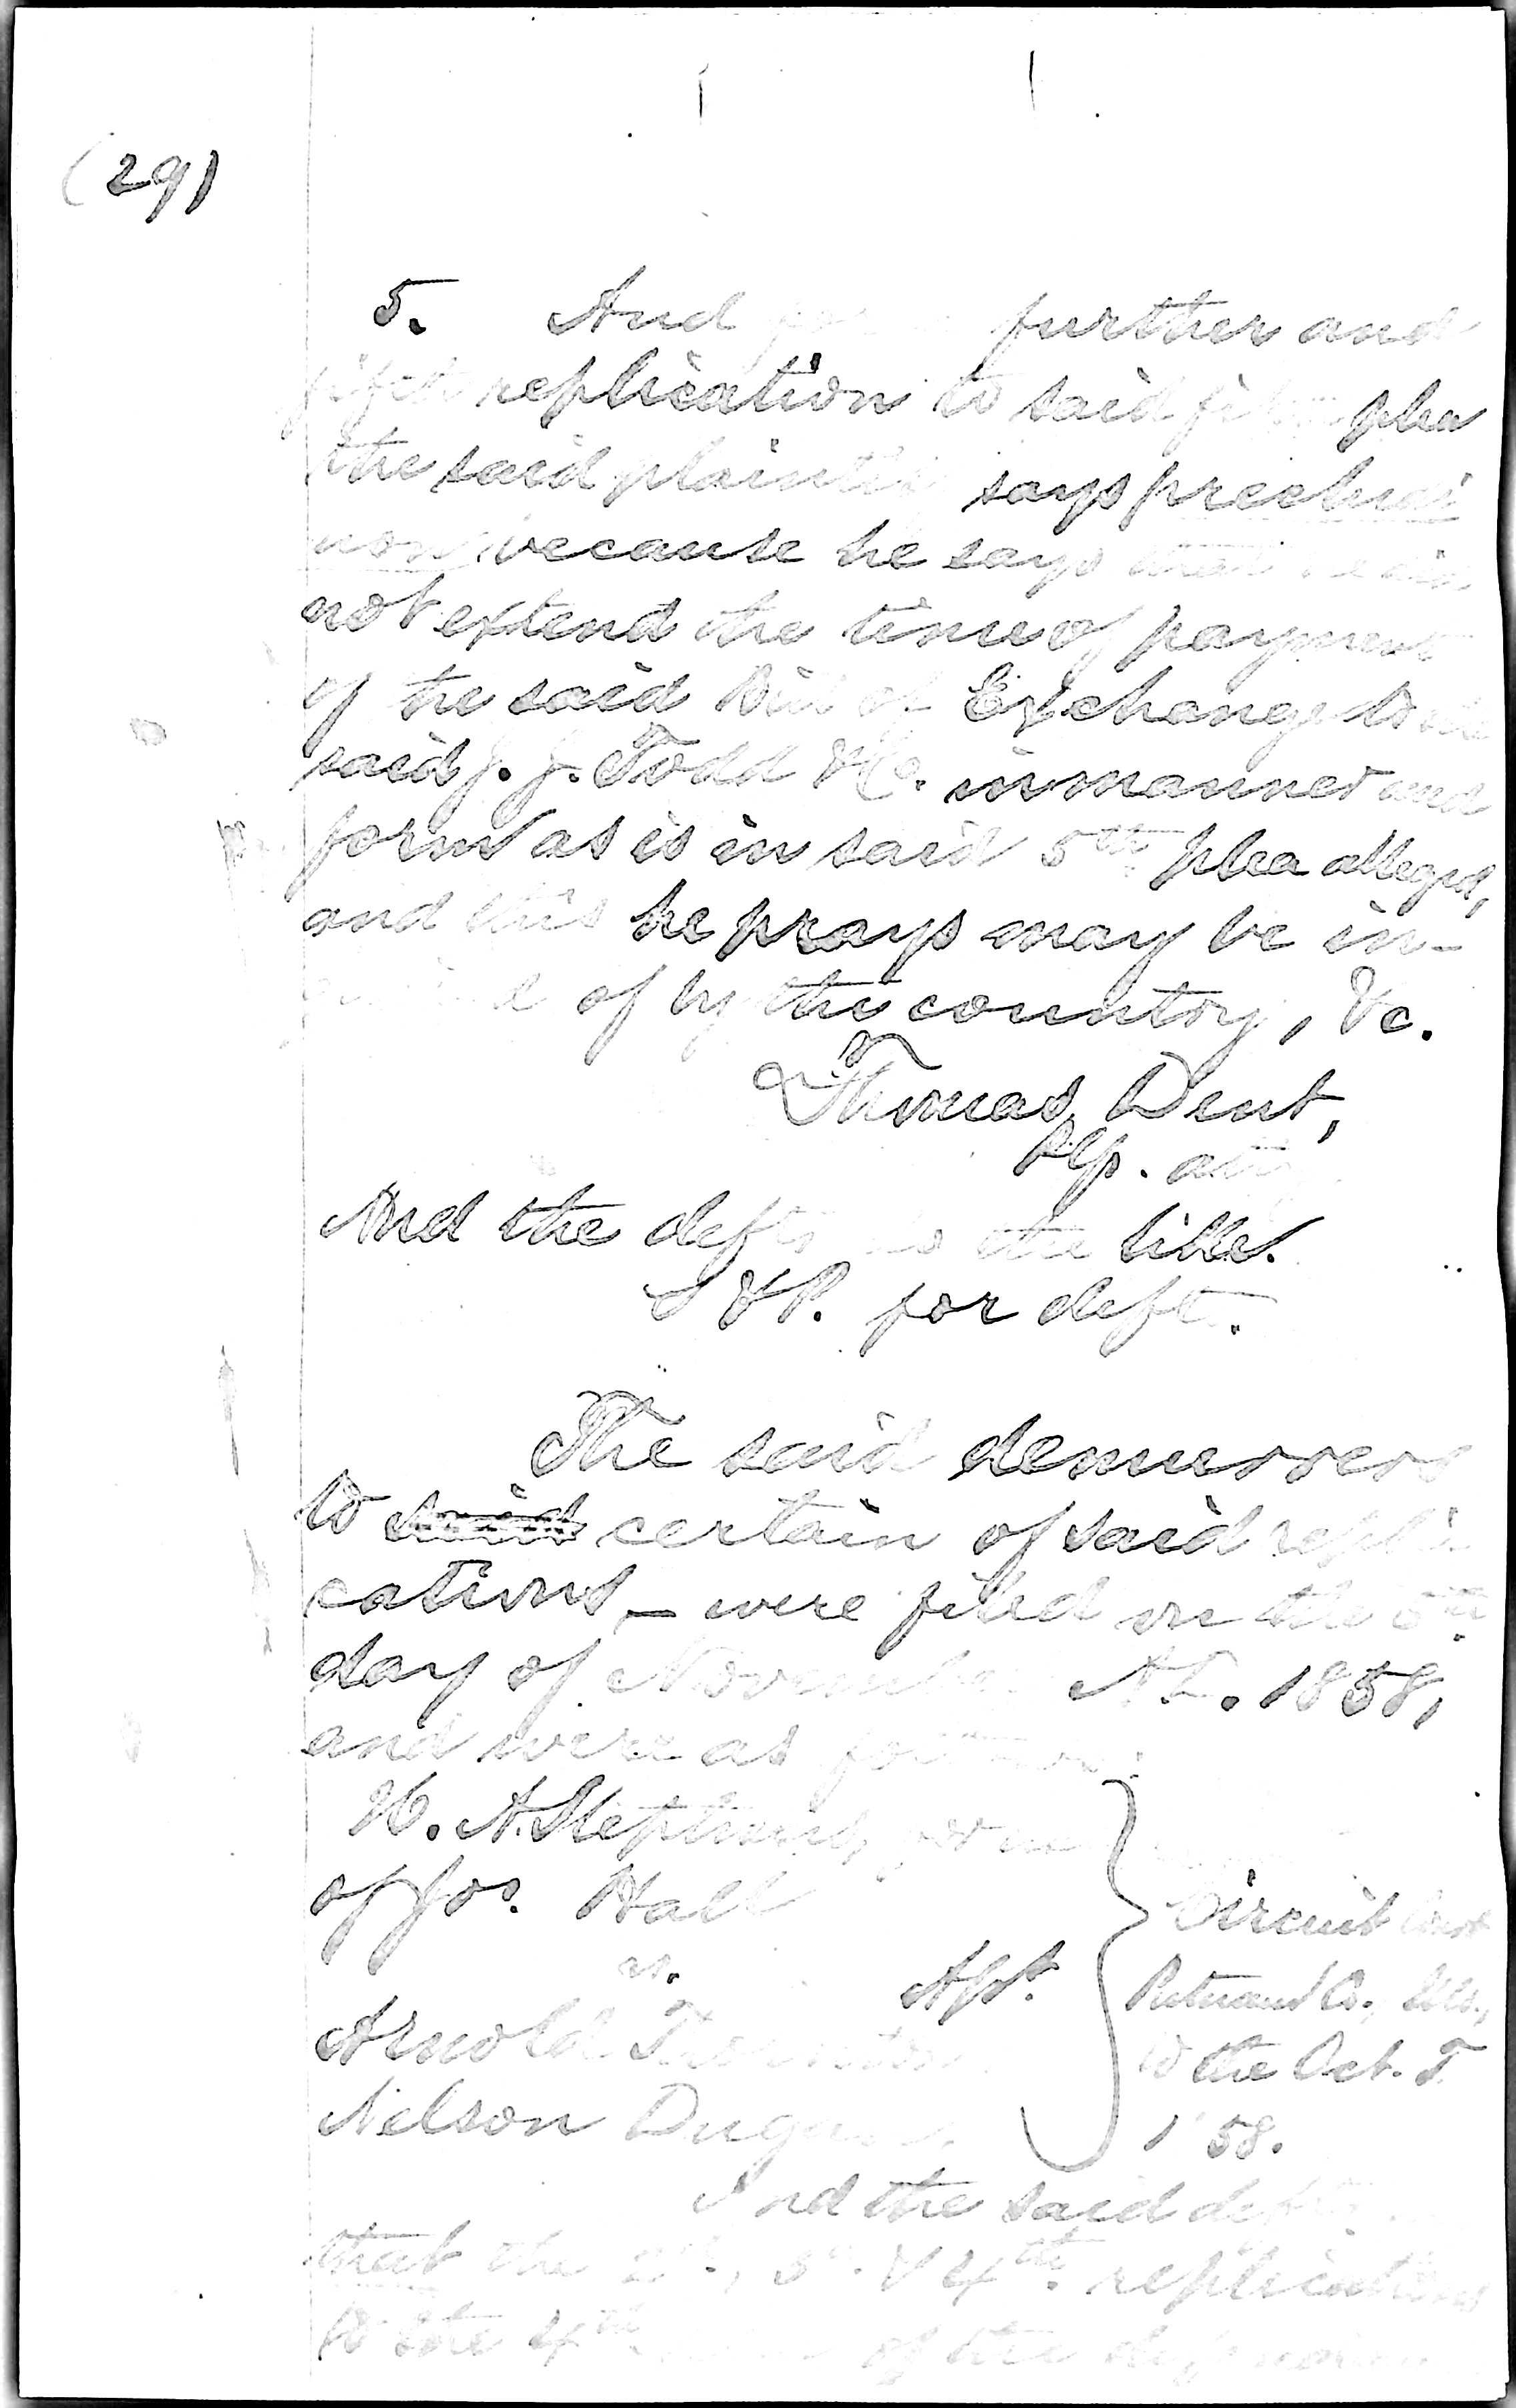 (29)
5. And further and
fifth replication to said fifth plea
the said plaintiff says precludi
non because he says that he did
not extend the time of payment
of the said Bill of Exchange to the
said J. J. Todd & Co. in manner and
form as is in said 5th plea alleged,
and this he prays may be in-
of by the country, &c.
Thomas Dent,
Plff. atty
And the deft does the like.
S & P. for deft.
The said demurrers
to said certain of said repli
cations - were filed on the 5th
day of November A.D. 1858,
and were as follows:
H. A. Stephens, for use
of Jos. Hall
vs. Apt.
Arnold
Nelson
Circuit Court
Putnam Co., Ills.,
to the Oct. T.
1858.
And the said deft
that the 2d, 3d & 4th replications
to the 4th of the